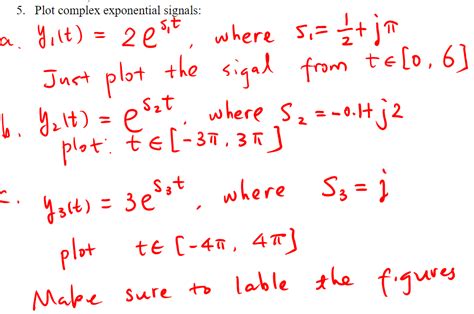 5. Plot complex exponential signals:
a. y₁(t) = 2e^{s₁t}, where s₁ = 1/2 + jπ
Just plot the sigal from t ∈ [0, 6]
b. y₂(t) = e^{s₂t}, where S₂ = -0.1+j2
plot: t ∈ [-3π, 3π]
c. y₃(t) = 3e^{s₃t}, where S₃ = j
plot t ∈ [-4π, 4π]
Make sure to lable the figures